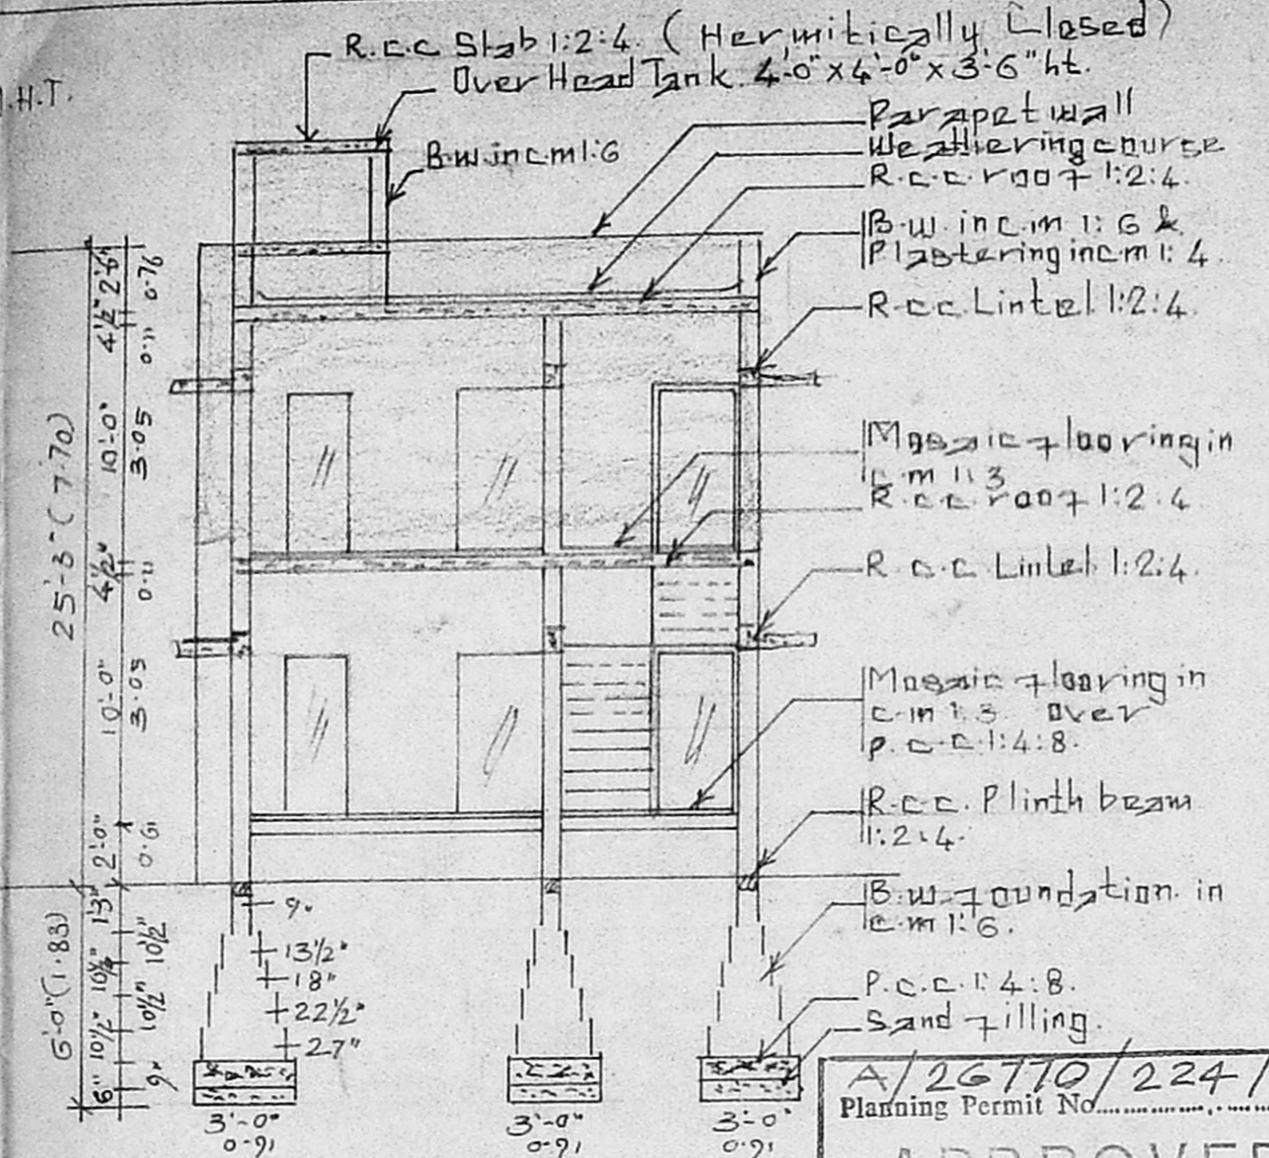 R.c.c Slab 1:2:4. (Hermitically Closed)
Over Head Tank. 4'-0" x 4'-0" x 3'-6" ht.
.H.T.
B.w. in c.m 1:6
Parapet wall
Weathering course
R.c.c. roof 1:2:4.
B.w. in c.m 1:6 &
Plastering in c.m 1:4.
R.c.c. Lintel 1:2:4.
Mosaic flooring in
c.m 1:3
R.c.c. roof 1:2:4
R.c.c Lintel 1:2:4.
Mosaic flooring in
c.m 1:3 over
p.c.c. 1:4:8.
R.c.c. Plinth beam
1:2:4.
B.w. foundation in
c.m 1:6.
P.c.c. 1:4:8.
Sand filling.
25'-3" (7.70)
2'-6"
0.76
4½"
0.11
10'-0"
3.05
4½"
0.11
10'-0"
3.05
2'-0"
0.61
6'-0" (1.83)
10½"
10½"
10½"
10½"
9"
6"
9"
13½"
18"
22½"
27"
3'-0"
0.91
3'-0"
0.91
3'-0"
0.91
A/26770/224/
Planning Permit No
APPROVED